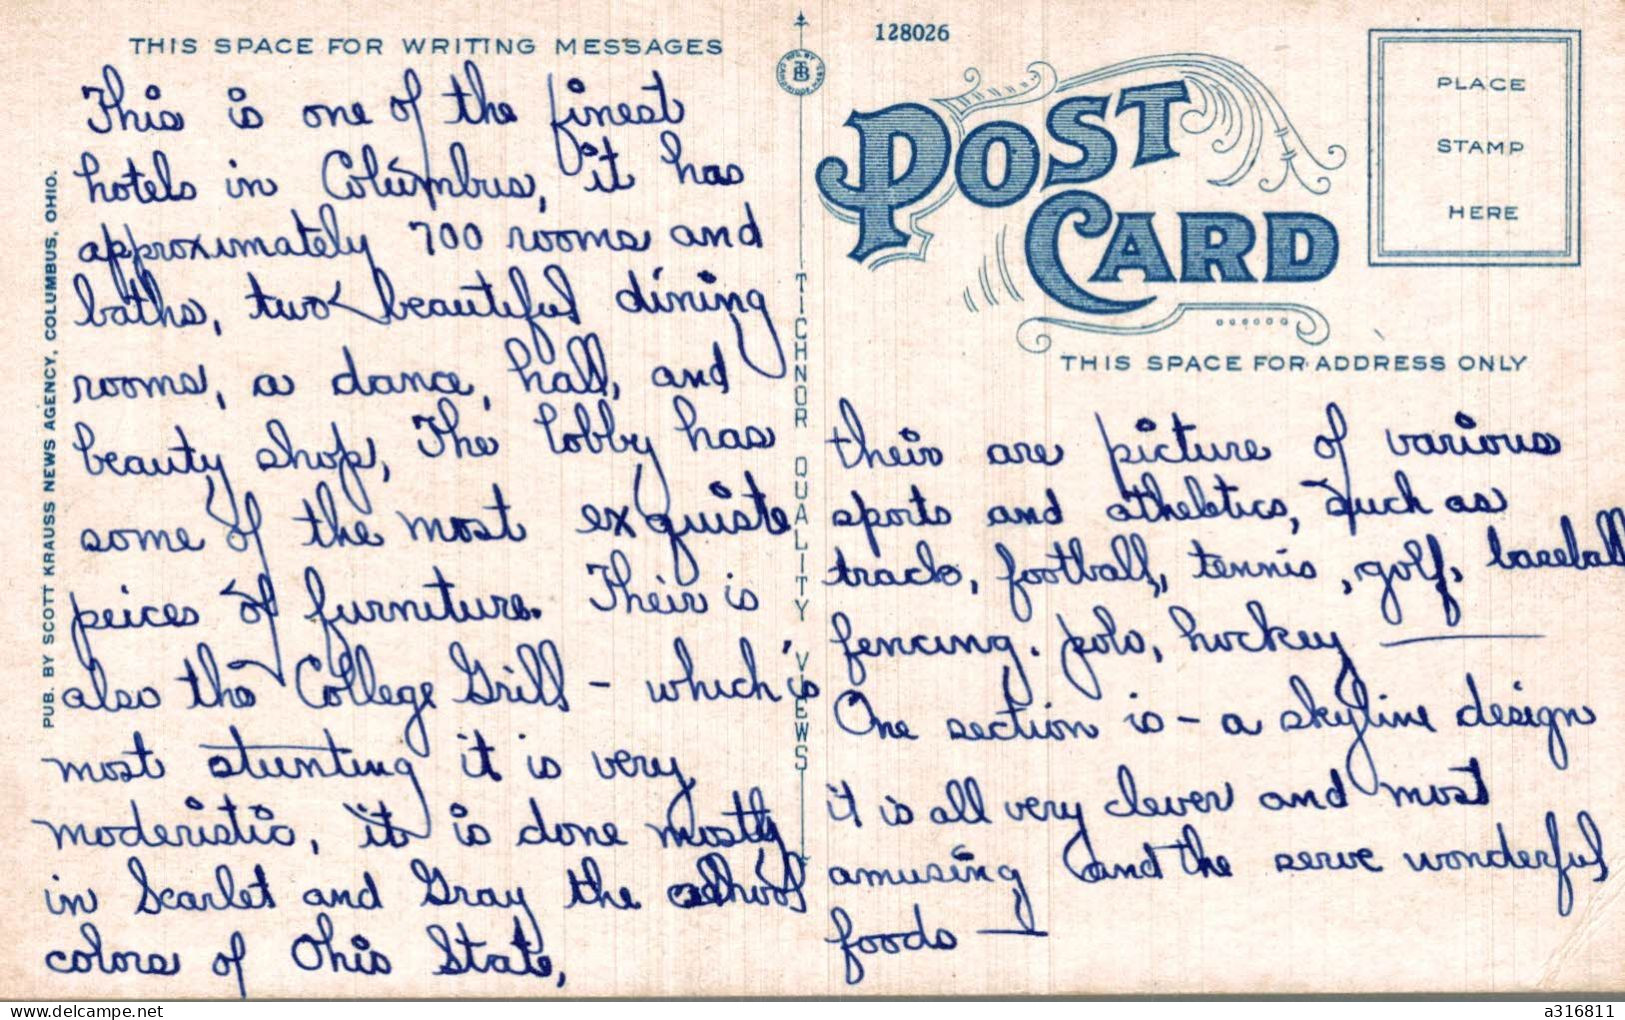 THIS SPACE FOR WRITING MESSAGES
This is one of the finest
hotels in Columbus, it has
approximately 700 rooms and
baths, two beautiful dining
rooms, a dance, hall, and
beauty shop, The lobby has
some of the most exquiste
peices of furniture. Their is
also the College Grill - which is
most stunting it is very
moderistic, it is done mostly
in Scarlet and Gray the school
colors of Ohio State,
PUB. BY SCOTT KRAUSS NEWS AGENCY, COLUMBUS, OHIO.
TICHNOR QUALITY VIEWS
MFD. BY
TB
CAMBRIDGE, MASS.
128026
POST
CARD
PLACE
STAMP
HERE
THIS SPACE FOR ADDRESS ONLY
their are picture of various
sports and atheletics, such as
track, football, tennis, golf, baseball
fencing. polo, hockey —
One section is - a skyline design
it is all very clever and most
amusing and the serve wonderful
foods —
a316811